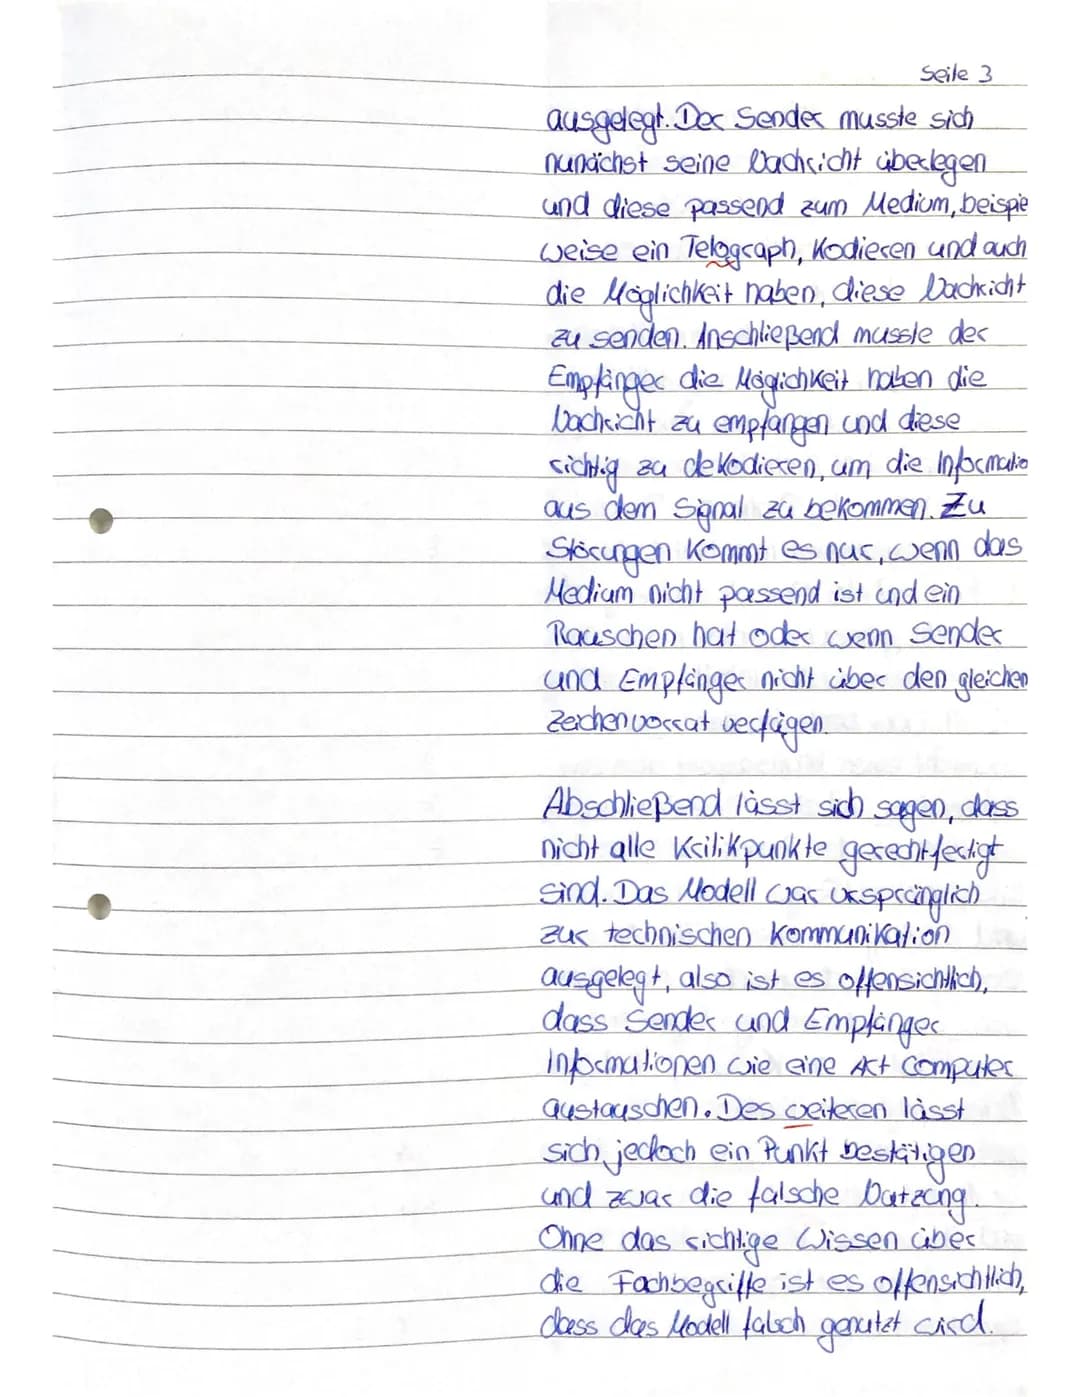 Seite 3
ausgelegt. Der Sender musste sich
nunächst seine Nachricht überlegen
und diese passend zum Medium, beispie
weise ein Telegraph, Kodieren und auch
die Möglichkeit haben, diese Nachricht
zu senden. Anschließend musste der
Empfänger die Möglichkeit haben die
Nachricht zu empfangen und diese
richtig zu dekodieren, um die Informatio
aus dem Signal zu bekommen. Zu
Störungen kommt es nur, wenn das
Medium nicht passend ist und ein
Rauschen hat oder wenn Sender
und Empfänger nicht über den gleichen
Zeichenvorrat verfügen.
Abschließend lässt sich sagen, dass
nicht alle Kritikpunkte gerechtfertigt
sind. Das Modell war ursprünglich
zur technischen Kommunikation
ausgelegt, also ist es offensichtlich,
dass Sender und Empfänger
Informationen wie eine Art Computer
austauschen. Des weiteren lässt
sich jedoch ein Punkt bestätigen
und zwar die falsche Nutzung.
Ohne das richtige Wissen über
die Fachbegriffe ist es offensichtlich,
dass das Modell falsch genutzt wird.